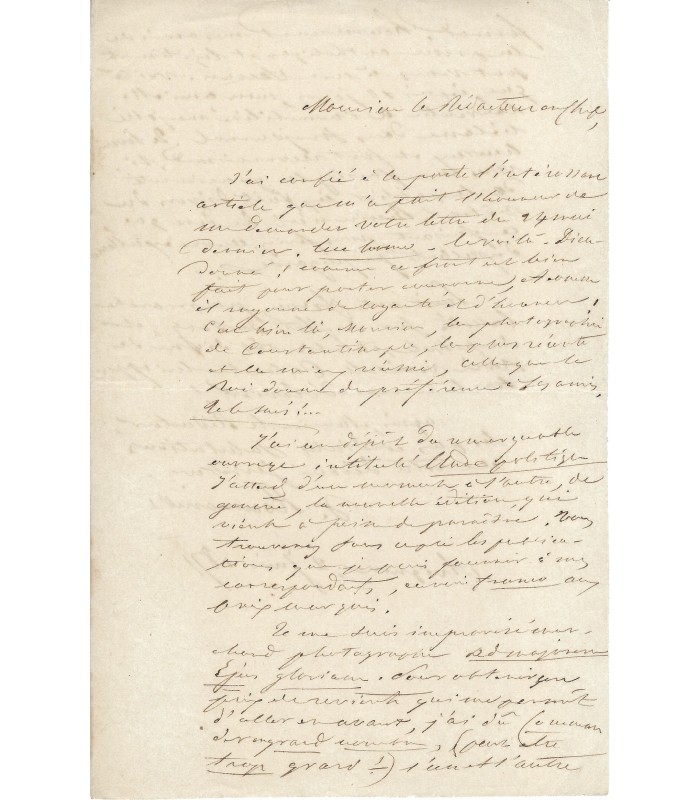 Monsieur le Rédacteur en Chef,
J'ai confié à la poste l'intéressant
article que m'a fait l'honneur de
me demander votre lettre du 24 mai
dernier. Ecce homo - le voilà - Dieu-
donné ! comme ce front est bien
fait pour porter couronne, et comme
il rayonne de loyauté et d'honneur !
C'est bien là, Monsieur, la photographie
de Constantinople, la plus récente
et la mieux réussie, celle que le
Roi donne de préférence à ses amis,
Je le sais !...
J'ai un dépôt du remarquable
ouvrage intitulé Etude politique
J'attends d'un moment à l'autre, de
genève, la nouvelle édition, qui
vient à peine de paraître. Vous
trouverez sous ce pli les publica-
tions que je puis fournir à mes
correspondants, envoi franco aux
prix marqués.
Je me suis improvisé mar-
chand photographe ad majorem
Ejus gloriam. Pour obtenir un
prix de revient qui me permît
d'aller en avant, j'ai dû comman
der en grand nombre, (peut être
trop grand !) l'une et l'autre